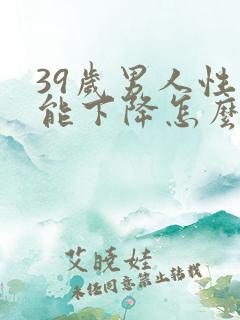 39歲男人性
能下降怎麼
艾曉娃
未经同意禁止转载